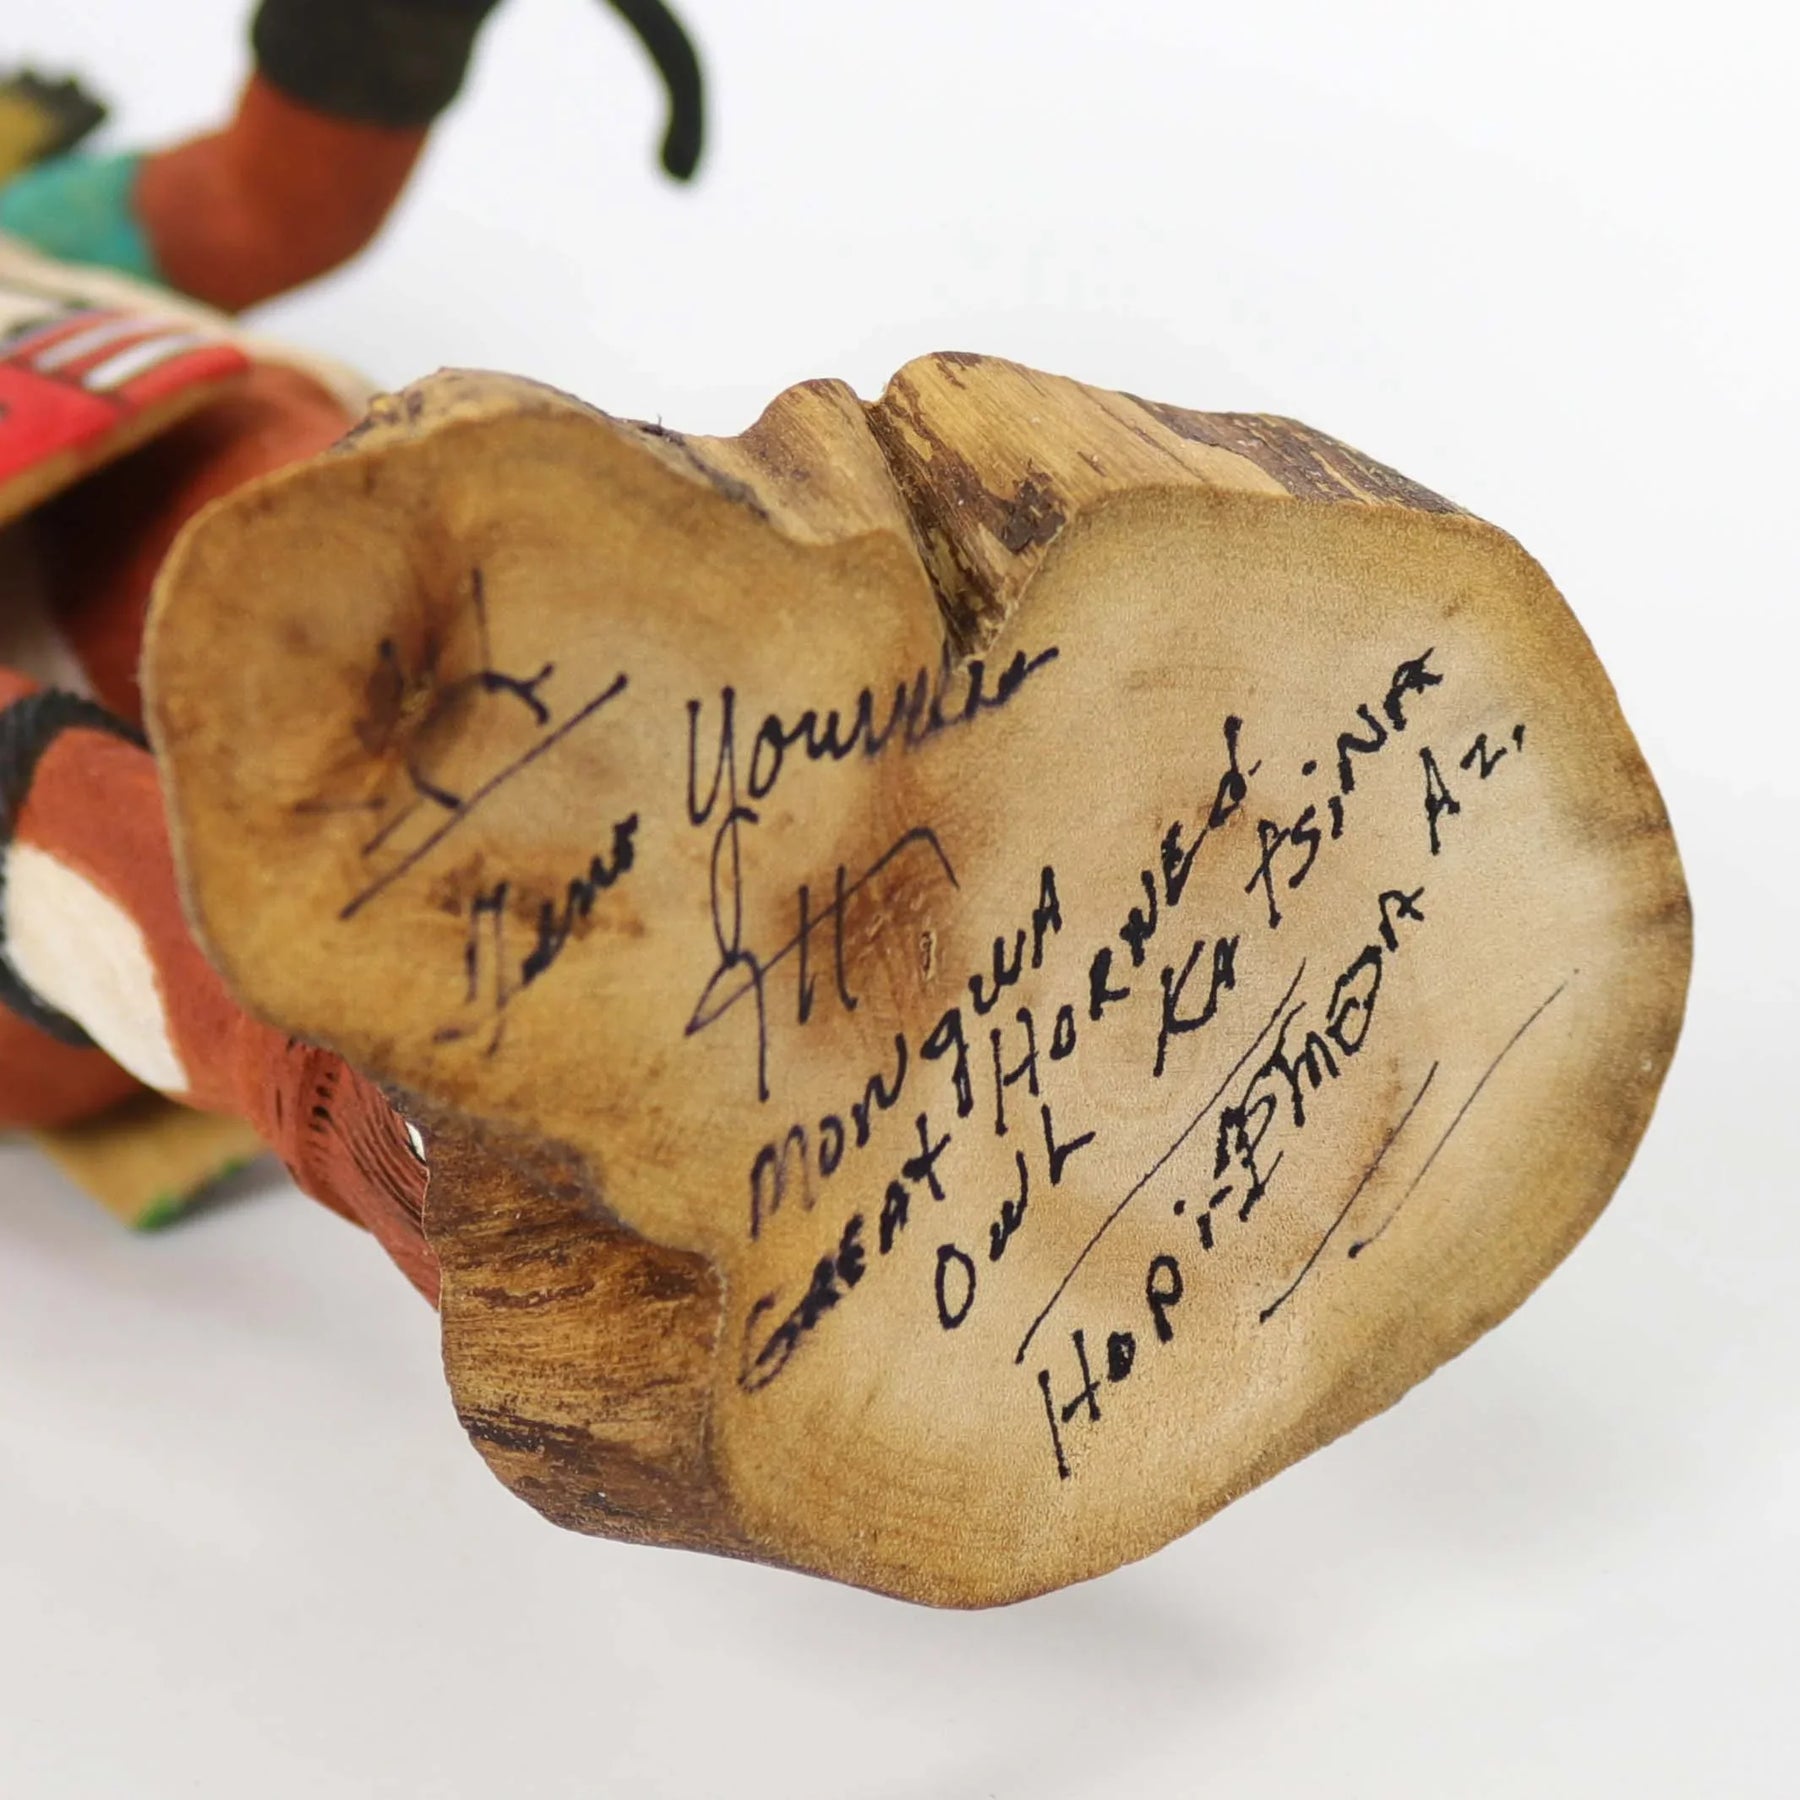 Youvella
MONgWA
GREAT HORNED
OWL KATSiNA
HOPi AZ.